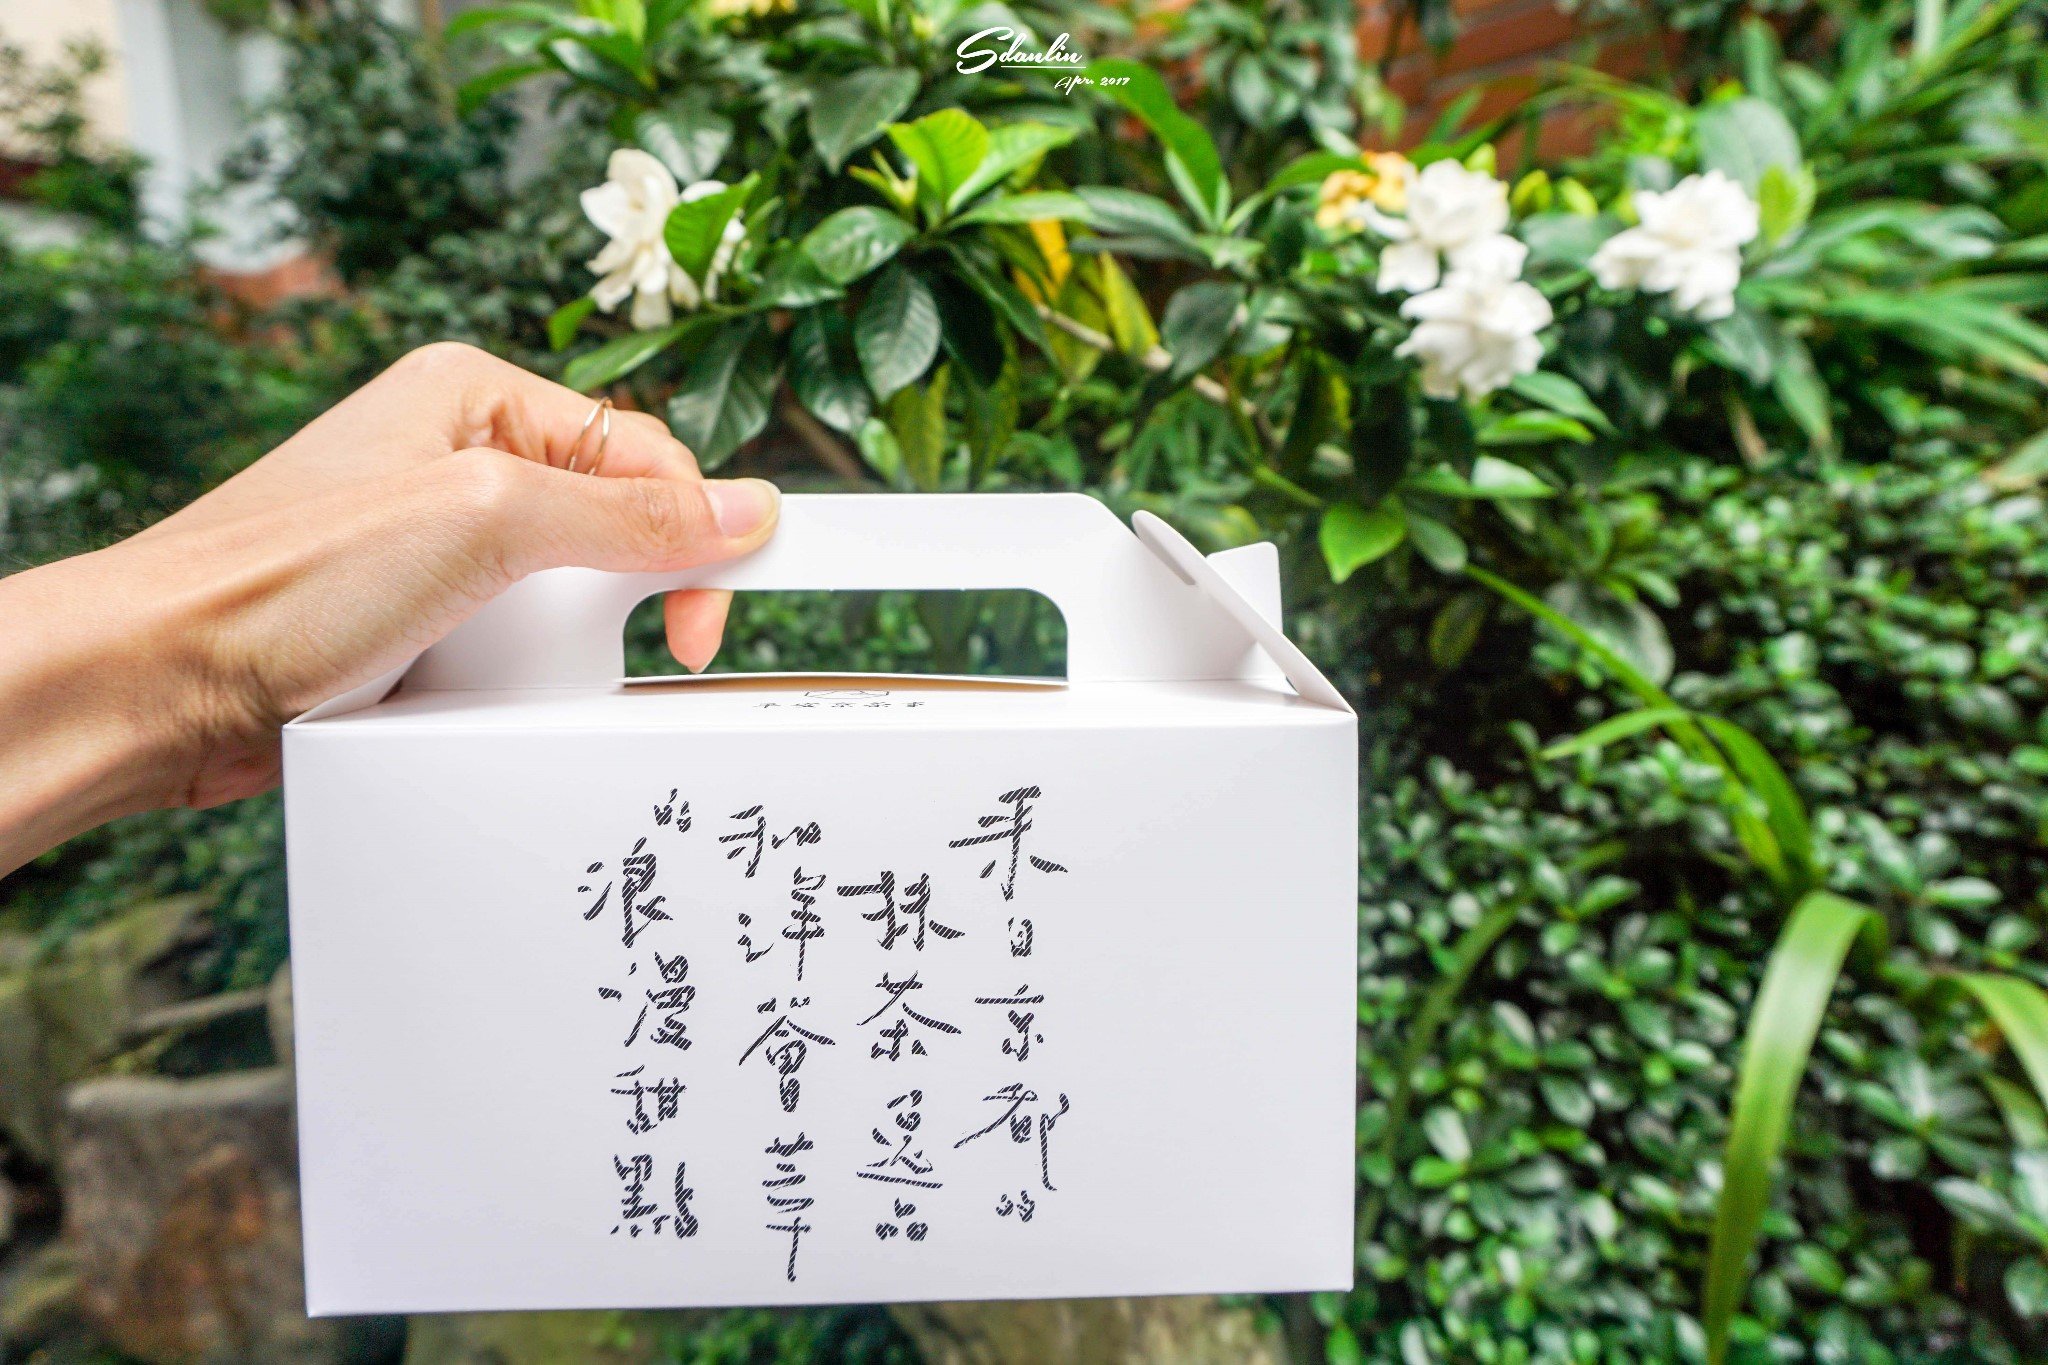 Sdanlin
Apr. 2017
来自京都的
抹茶逸品
和洋薈萃
的浪漫甜點